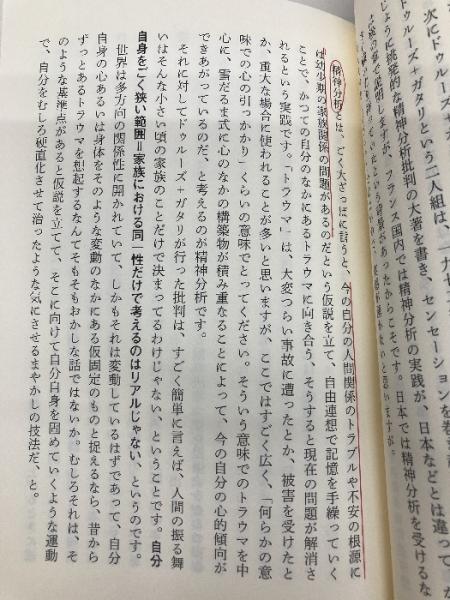 次にドゥルーズ+ガタリという二人組は、一九七
ように挑発的な精神分析批判の大著を書き、センセーションを巻き
説明しますが、フランス国内では精神分析の実践が、日本などとは違って
からこそです。日本では精神分析を受けるな
思いますが。
精神分析とは、ごく大ざっぱに言うと、今の自分の人間関係のトラブルや不安の根源に
は幼少期の家族関係の問題があるのだという仮説を立て、自由連想で記憶を手繰っていく
ことで、かつての自分のなかにあるトラウマに向き合う、そうすると現在の問題が解消さ
れるという実践です。「トラウマ」は、大変つらい事故に遭ったとか、被害を受けたと
か、重大な場合に使われることが多いと思いますが、ここではすごく広く、「何らかの意
味での心の引っかかり」くらいの意味でとってください。そういう意味でのトラウマを中
心に、雪だるま式に心のなかの構築物が積み重なることによって、今の自分の心的傾向が
できあがっているのだ、と考えるのが精神分析です。
それに対してドゥルーズ+ガタリが行った批判は、すごく簡単に言えば、人間の振る舞
いはそんな小さい頃の家族のことだけで決まってるわけじゃない、ということです。自分
自身をごく狭い範囲=家族における同一性だけで考えるのはリアルじゃない、というのです。
世界は多方向の関係性に開かれていて、しかもそれは変動しているはずであって、自分
自身の心あるいは身体をそのような変動のなかにある仮固定のものと捉えるなら、昔から
ずっとあるトラウマを想起するなんてそもそもおかしな話ではないか。むしろそれは、そ
のような基準点があると仮説を立てて、そこに向けて自分自身を固めていくような運動
で、自分をむしろ硬直化させて治ったような気にさせるまやかしの技法だ、と。